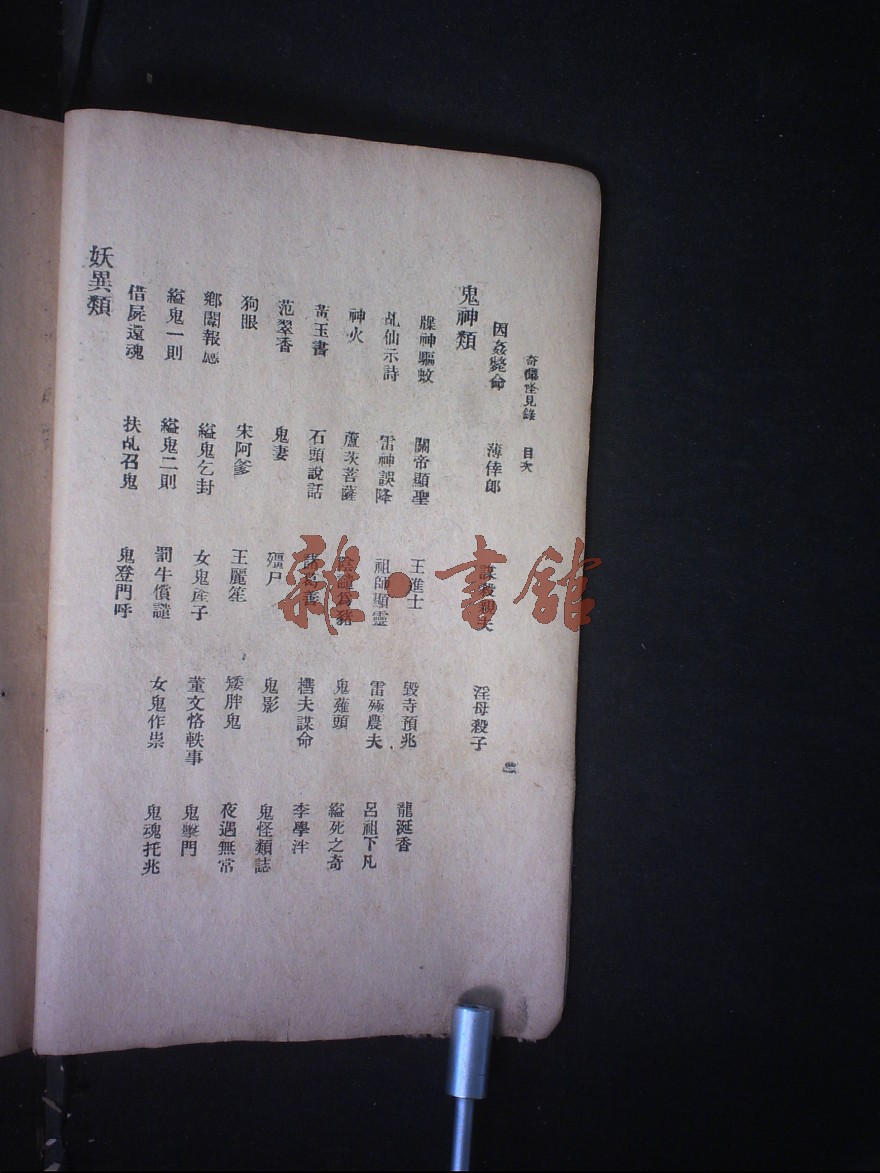 奇僻怪見錄 目次
因姦斃命 薄倖郎 謀殺親夫 淫母殺子
鬼神類
牒神驅蚊 關帝顯聖 王進士 毀寺預兆 龍涎香
乩仙示詩 雷神誤降 祖師顯靈 雷殛農夫 呂祖下凡
神火 蘆茨菩薩 陰譴為豬 鬼薙頭 縊死之奇
黃玉書 石頭說話 諸葛善 槽夫謀命 李學泮
范翠香 鬼妻 殭尸 鬼影 鬼怪類誌
狗眼 宋阿爹 王麗笙 矮胖鬼 夜遇無常
鄉闈報應 縊鬼乞封 女鬼產子 董文恪軼事 鬼擊門
縊鬼一則 縊鬼二則 罰牛償譴 女鬼作祟 鬼魂托兆
借屍還魂 扶乩召鬼 鬼登門呼
妖異類
雜·書館